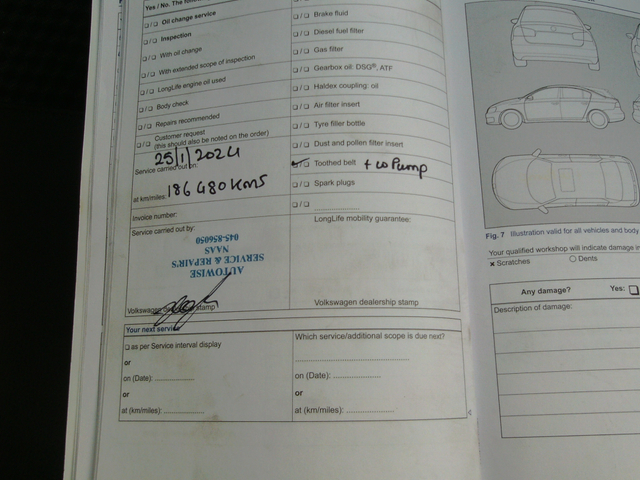 Yes / No. The
❏ / ❏ Oil change service
❏ / ❏ Inspection
❏ / ❏ With oil change
❏ / ❏ With extended scope of inspection
❏ / ❏ LongLife engine oil used
❏ / ❏ Body check
❏ / ❏ Repairs recommended
❏ / ❏ Customer request
(this should also be noted on the order)
25/1/2024
Service carried out on:
at km/miles: 186 480 KMS
Invoice number:
Service carried out by:
AUTOWISE
SERVICE & REPAIR'S
NAAS
045-856050
Volkswagen dealership stamp
❏ / ❏ Brake fluid
❏ / ❏ Diesel fuel filter
❏ / ❏ Gas filter
❏ / ❏ Gearbox oil: DSG®, ATF
❏ / ❏ Haldex coupling: oil
❏ / ❏ Air filter insert
❏ / ❏ Tyre filler bottle
❏ / ❏ Dust and pollen filter insert
❏ / ❏ Toothed belt + W Pump
❏ / ❏ Spark plugs
❏ / ❏ ....................
LongLife mobility guarantee:
Volkswagen dealership stamp
Your next service
❏ as per Service interval display
or
on (Date): ....................
or
at (km/miles): ....................
Which service/additional scope is due next?
........................................
on (Date): ....................
or
at (km/miles): ....................
Fig. 7 Illustration valid for all vehicles and body
Your qualified workshop will indicate damage in
× Scratches ○ Dents
Any damage? Yes: ❏
Description of damage: